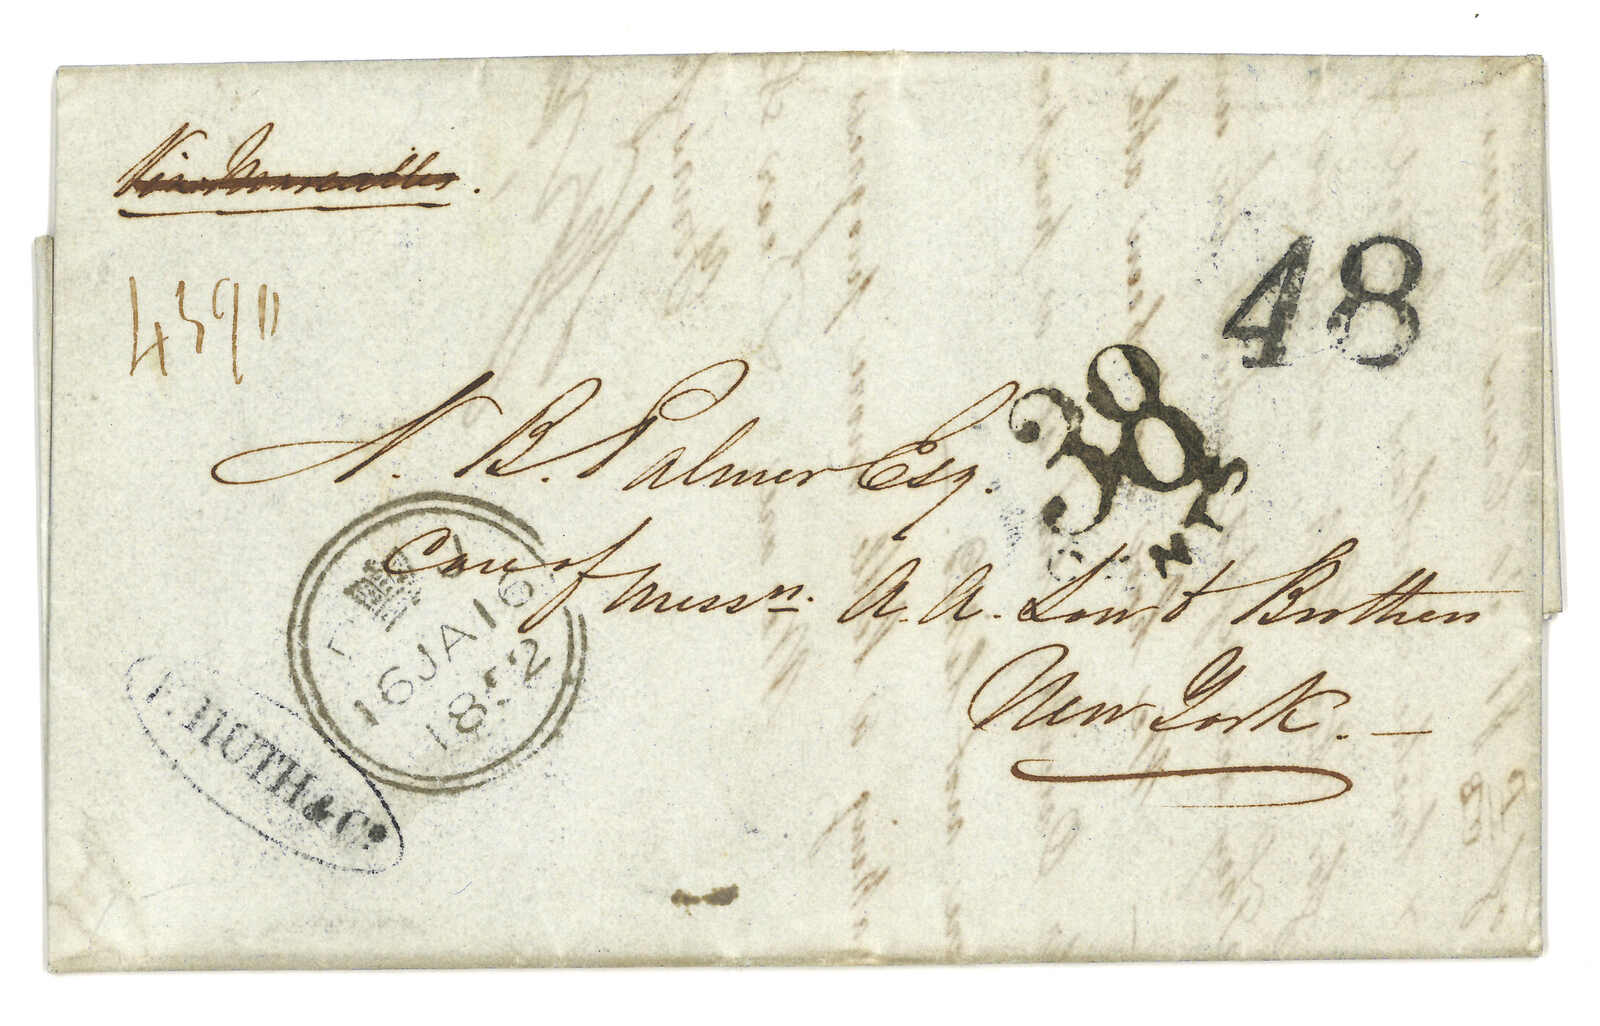 Via Marseilles.
48
4390
38
N. B. Palmer Esq.
Care of Messrs. A. A. Low & Brothers
New York. —
16JA16
1852
F. HUTH & Co.